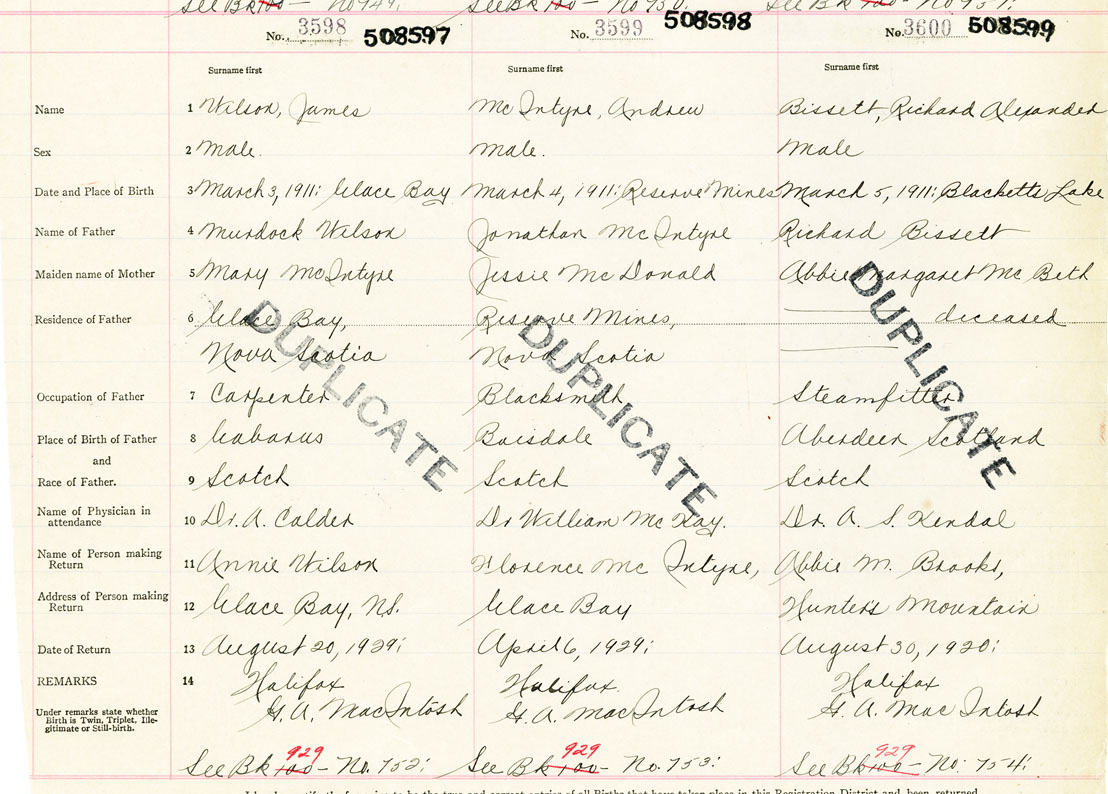 See Bk 100 — No 749; See Bk 100 — No 750; See Bk 100 — No 751;
No. 3598 508597 No. 3599 508598 No. 3600 508599
Surname first Surname first Surname first
Name 1 Wilson, James McIntyre, Andrew Bissett, Richard Alexander
Sex 2 Male. Male. Male
Date and Place of Birth 3 March 3, 1911: Glace Bay March 4, 1911: Reserve Mines March 5, 1911: Blacketts Lake
Name of Father 4 Murdock Wilson Jonathan McIntyre Richard Bissett
Maiden name of Mother 5 Mary McIntyre Jessie McDonald Abbie Margaret McBeth
Residence of Father 6 Glace Bay, Reserve Mines, deceased
Nova Scotia Nova Scotia
DUPLICATE DUPLICATE DUPLICATE
Occupation of Father 7 Carpenter Blacksmith Steamfitter
Place of Birth of Father 8 Gabarus Boisdale Aberdeen Scotland
and
Race of Father. 9 Scotch Scotch Scotch
Name of Physician in attendance 10 Dr. A. Calder Dr William McKay. Dr. A. S. Kendal
Name of Person making Return 11 Annie Wilson Florence McIntyre, Abbie M. Brooks,
Address of Person making Return 12 Glace Bay, N.S. Glace Bay Hunter's Mountain
Date of Return 13 August 20, 1929; April 6, 1929; August 30, 1920;
REMARKS 14 Halifax Halifax. Halifax
G. A. MacIntosh G. A. MacIntosh G. A. MacIntosh
Under remarks state whether
Birth is Twin, Triplet, Ille-
gitimate or Still-birth.
929 929 929
See Bk 100 — No. 752; See Bk 100 — No. 753; See Bk 100 — No. 754;
true and correct entries of all Births that have taken place in this Registration District and been returned